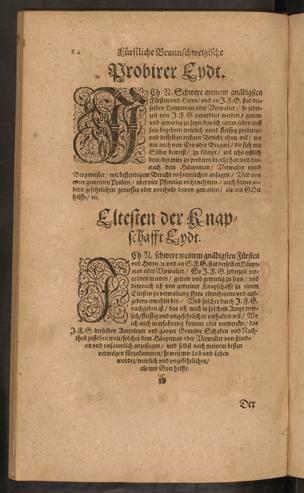 Fürstliche Braunschweigische
Probirer Eydt.
ICh N. Schwere meinem gnädigsten
Fürsten und Herrn/ und an J. F. G. stat der-
selben Hauptman oder Verwalter/ so jeder-
zeit von J. F. G. verordnet werden/ getrew
und gewertig zu seyn/ das ich einem jeden auff
sein begehren trewlich und fleissig probiren/
und desselben rechten Bericht thun wil/ wo
mir auch new Ertz oder Bergart/ die sich mit
Silber beweist/ zu kömpt/ wil ichs erstlich
dem/ der mirs zu probiren bracht hat/ und dar-
nach dem Hauptman/ Verwalter und
Bergmeister/ mit bestendigem Bericht unseumlichen ansagen/ Und von
einer gemeinen Proben/ uber vier Pfennige nicht nehmen/ auch keinen an-
dern gefehrlichen geniesses oder vortheils davon gewarten/ als mir GOtt
helffe/ etc.
Eltesten der Knap-
schafft Eydt.
ICh N. schwere meinem gnädigsten Fürsten
und Herrn etc. und an S. F. G. stat derselben Häupt-
man oder Verwalter/ So J. F. G. jederzeit ver-
ordnen werden/ getrew und gewertig zu seyn/ und
demnach ich von gemeiner Knapschafft zu einem
Eltesten zu verwaltung ihres
erwehlet bin/ Und solches durch J. F. G.
nachgeben ist/ das ich mich in solchem Ampt trew-
lich/ fleissig und ungefehrlichen verhalten wil/ Wo
ich auch in erfahrung komme oder vermerckte/ das
J. F. G. derselben Amptleute und gantzer Gemeine Schaden und Nach-
theil zustehen wil/ solches dem Häuptman oder Verwalter von stund-
an und unseumlich anzusagen/ und selbst nach meinem besten
vermögen fürzukommen/ so weit mir Leib und Leben
wendet/ trewlich und ungefehrlichen/
als mir Gott helffe.
Der